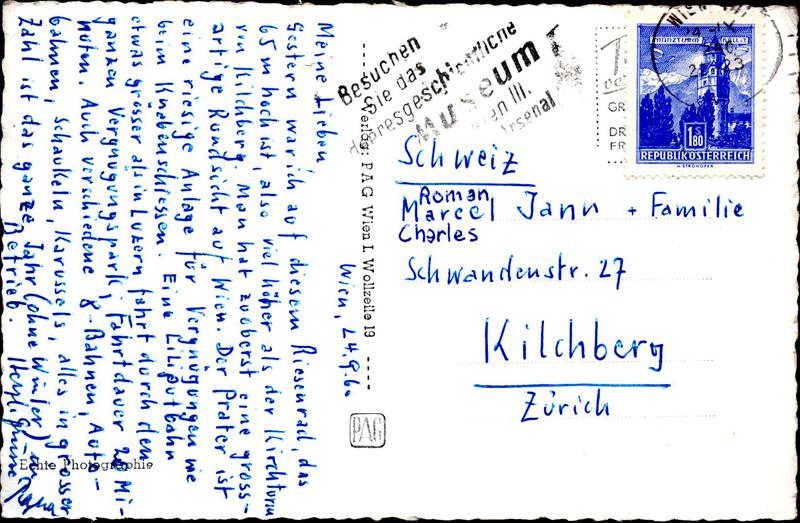 Wien, 24.9.60
Meine Lieben,
Gestern war ich auf diesem Riesenrad, das
65 m hoch ist, also viel höher als der Kirchturm
von Kilchberg. Man hat zuoberst eine gross-
artige Rundsicht auf Wien. Der Prater ist
eine riesige Anlage für Vergnügungen wie
beim Knabenschiessen. Eine Liliputbahn
etwas grösser als in Luzern fährt durch den
ganzen Vergnügungspark, Fahrtdauer 20 Mi-
nuten. Auch verschiedene 8-Bahnen, Auto-
bahnen, Schaukeln, Karussels, alles in grosser
Zahl ist das ganze Jahr (ohne Winter) in
Betrieb.
Herzl. Grüsse Papa
Echte Photographie
Verlag: PAG Wien I, Wollzeile 19
PAG
Besuchen
Sie das
Heeresgeschichtliche
Museum
Wien III.
Arsenal
WIEN
MÜNZTURM
1.80
REPUBLIK ÖSTERREICH
H. STROHOFER
Schweiz
Roman
Marcel Jann + Familie
Charles
Schwandenstr. 27
Kilchberg
Zürich